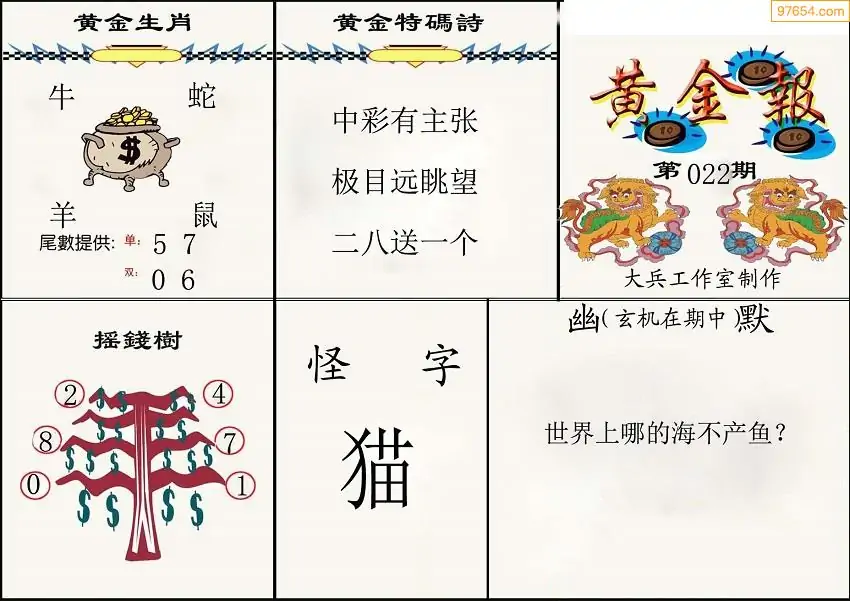 97654.com
黄金生肖
牛 蛇
$
羊 鼠
尾數提供: 单: 5 7
双: 0 6
黄金特碼詩
中彩有主张
极目远眺望
二八送一个
黄金報
10
10
10
第022期
大兵工作室制作
摇錢樹
2 4
$ $ $ $
$ $ $ $
8 7
$ $ $ $
0 1
$ $ $ $
怪 字
猫
幽(玄机在期中)默
世界上哪的海不产鱼?